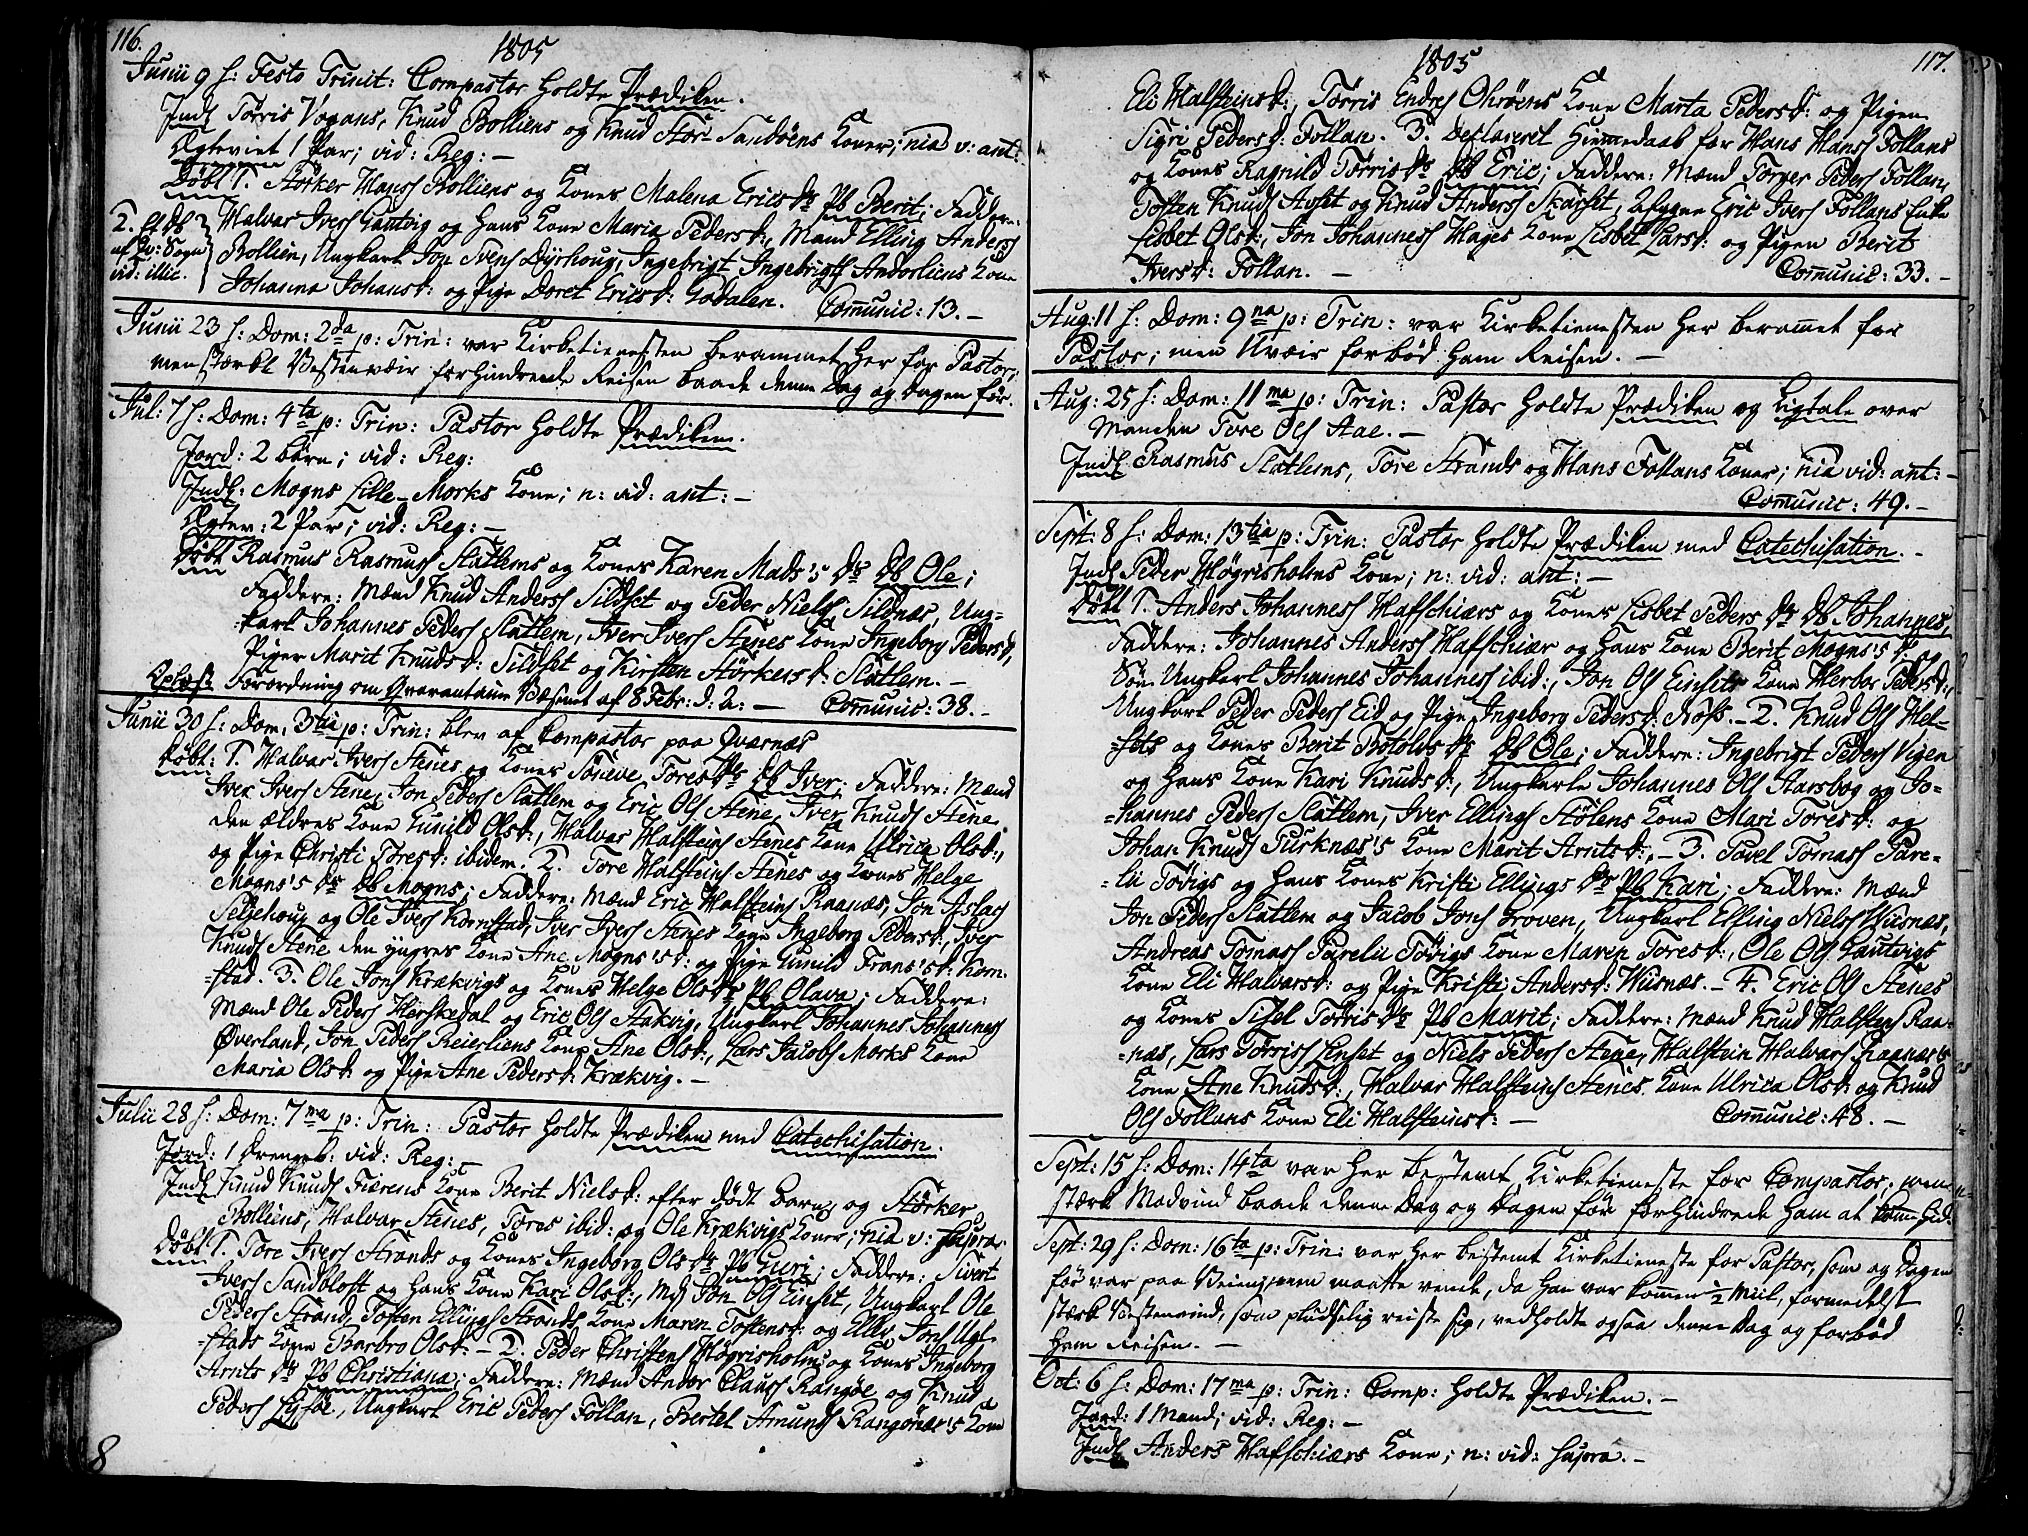 116.
1805
Junii 9 h: Festo Trinit: Compastor holdte Prædiken.
Indl Torris Vogans, Knud Bolliens og Knud Stor-Sandöens Koner; nia v: ant:
Ægteviet 1 Par; vid: Reg: —
Döbt 1. Störker Hanss Bolliens og Kones Malena Erics Dr Pb Berit; Faddere:
2.
af Qv: Sogn
vid: illic.
Halvar Ivers Gautvig og hans Kone Maria Pedersd:, Mand Elling Anderss
Bollien, Ungkarl Jon Svens Dyrhoug, Ingebrigt Ingebrigts Andorliens Kone
Johanna Johansd: og Pige Doret Ericsd: Godalen. Comunic: 13. —
Junii 23 h: Dom: 2da p: Trin: var Kirketienesten berammet her for Pastor;
men stærkt Vestenveir forhindrede Reisen baade denne Dag og Dagen för.
Jul: 7 h: Dom: 4ta p: Trin: Pastor holdte Prædiken.
Jord: 2 börn; vid: Reg:
Indl: Mogns Lille-Morks Kone; n: vid: ant: —
Ægtev: 2 Par; vid: Reg: —
Döbt Rasmus Rasmuss Slatlems og Kones Karen Mads's Dr Db Ole;
Faddere: Mænd Knud Anderss Sildset og Peder Niels Sildnæs, Ung-
karl Johannes Peders Slatlem, Iver Ivers Stenes Kone Ingeborg Pedersd:,
Piger Marit Knudsd: Sildset og Kirsten Störkersd: Slatlem. —
Oplæst Forordning om Qvarantaine Væsenet af 8 Febr: d: A: — Comunic: 38. —
Junii 30 h: Dom: 3tia p: Trin: blev af Compastor paa Qværnæs
Döbt: 1. Halvar Ivers Stenes og Kones Söneve Tores Dr Db Iver; Faddere: Mænd
Iver Ivers Stene, Jon Peders Slatlem og Eric Ols Stene, Iver Knuds Stene
den ældres Kone Gunild Olsd:, Halvar Halsteins Stenes Kone Ulrica Olsd:,
og Pige Christi Toresd: ibidem. 2. Tore Halsteins Stenes og Kones Helge
Mogns's Dr Db Mogns; Faddere: Mænd Eric Halsteins Raanæs, Jon Aslacs
Seljehoug og Ole Ivers Kornstad, Iver Ivers Stenes Kone Ingeborg Pedersd:, Iver
Knuds Stene den yngres Kone Ane Mogns'sd: og Pige Gunild Frans'sd: Korn-
stad. 3. Ole Jons Krækvigs og Kones Helge Ols Dr Pb Olava; Faddere:
Mænd Ole Peders Herskedal og Eric Ols Stakvig, Ungkarl Johannes Johanness
Överland, Jon Peders Reierliens Kone Ane Olsd:, Lars Jacobs Morks Kone
Maria Olsd: og Pige Ane Pedersd: Krækvig. —
Julii 28 h: Dom: 7ma p: Trin: Pastor holdte Prædiken med Catechisation.
Jord: 1 Drengeb: vid: Reg: —
Indl Knud Knuds Færens Kone Berit Nielsd: efter dödt barn, og Störker
Bolliens, Halvar Stenes, Tores ibid: og Ole Krækvigs Koner; nia v: supra.
Döbt 1. Tore Ivers Strands og Kones Ingeborg Ols Dr Pb Guri; Faddere: Sivert
Ivers Sandbloft og hans Kone Kari Olsd:, Md Jon Ols Einset, Ungkarl Ole
Peders Strand, Tosten Ellings Strands Kone Maren Tostensd: og Ellev Jons Ugl-
stads Kone Barbro Olsd: — 2. Peder Christens Högrisholms og Kones Ingeborg
Arnts Dr Pb Christiana; Faddere: Mænd Andor Clauss Rangöe og Knud
Peders Ligsöe, Ungkarl Eric Peders Follan, Bertel Amunds Rangönæs's Kone
8
117.
1805
Eli Halsteinsd:, Torris Endres Ohröens Kone Marta Pedersd: og Pigen
Sigri Pedersd: Follan. 3. Declareret Hiemmedaab for Hans Hanss Follans
og Kones Ragnild Torris Dr Db Eric; Faddere: Mænd Torger Peders Follan,
Tosten Knuds Aaset og Knud Anderss Skarset, Afgagne Eric Ivers Follans Enke
Lisbet Olsd:, Jon Johanness Hages Kone Lisbet Larsd: og Pigen Berit
Iversd: Follan. — Comunic: 33. —
Aug: 11 h: Dom: 9na p: Trin: var Kirketienesten her berammet for
Pastor; men Uveir forböd ham Reisen. —
Aug: 25 h: Dom: 11ma p: Trin: Pastor holdte Prædiken og Ligtale over
Manden Tore Ols Aae. —
Indl Rasmus Slatlems, Tore Strands og Hans Follans Koner; nia vid: ant: —
Comunic: 49. —
Sept: 8 h: Dom: 13tia p: Trin: Pastor holdte Prædiken med Catechisation. —
Indl Peder Högrisholms Kone; n: vid: ant: —
Döbt 1. Anders Johanness Hafschiærs og Kones Lisbet Peders Dr Db Johannes,
Faddere: Johannes Anderss Hafschiær og hans Kone Berit Mogns's d: og
Sön Ungkarl Johannes Johanness ibid:, Jon Ols Einsets Kone Herbor Pedersd:,
Ungkarl Peder Peders Eid og Pige Ingeborg Pedersd: Röhs. — 2. Knud Ols Hel-
sets og Kones Berit Botolvs Dr Db Ole; Faddere: Ingebrigt Peders Vigen
og hans Kone Kari Knudsd:, Ungkarle Johannes Ols Starsbog og Jo-
hannes Peders Slatlem, Iver Ellings Stölens Kone Mari Toresd: og
Johan Knuds Pursknæs's Kone Marit Arntsd:, — 3. Pavel Tomass Pare-
lii Tövigs og hans Kones Kristi Ellings Dr Pb Kari; Faddere: Mænd
Jon Peders Slatlem og Jacob Jons Groven, Ungkarl Elling Niels Wiisnæs,
Andreas Tomass Parelii Tövigs Kone Maren Toresd:, Ole Ols Gautvigs
Kone Eli Halvarsd: og Pige Kristi Andersd: Wiisnæs. — 4. Eric Ols Stenes
og Kones Sizel Torris Dr Pb Marit; Faddere: Mænd Knud Halsteins Raa-
næs, Lars Törriss Linset og Niels Peders Stene, Halstein Halvars Raanæs's
Kone Ane Knudsd:, Halvar Halsteins Stenes Kone Ulrica Olsd: og Knud
Ols Follans Kone Eli Halsteinsd: — Comunic: 48. —
Sept: 15 h: Dom: 14ta var her bestemt Kirketieneste for Compastor; men
stærk Modvind baade denne Dag og Dagen för forhindrede ham at komme hid.
Sept: 29 h: Dom: 16ta p: Trin: var her bestemt Kirketieneste for Pastor, som og Dagen
för var paa Veien, men maatte vende, da han var kommen ½ Miil, formedelst
stærk Vestenvind, som pludselig reiste sig, vedholdte ogsaa denne Dag og forböd
ham Reisen. —
Oct: 6 h: Dom: 17ma p: Trin: Comp: holdte Prædiken. —
Jord: 1 Mand; vid: Reg: —
Indl Anders Hafschiærs Kone; n: vid: supra. —